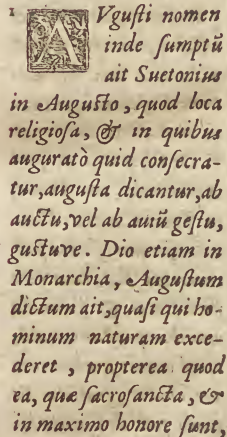 1 AVgusti nomen
inde sumptũ
ait Suetonius
in Augusto, quod loca
religiosa, & in quibus
auguratò quid consecra-
tur, augusta dicantur, ab
auctu, vel ab auiũ gestu,
gustuve. Dio etiam in
Monarchia, Augustum
dictum ait, quasi qui ho-
minum naturam exce-
deret, propterea quod
ea, quæ sacrosancta, &
in maximo honore sunt,